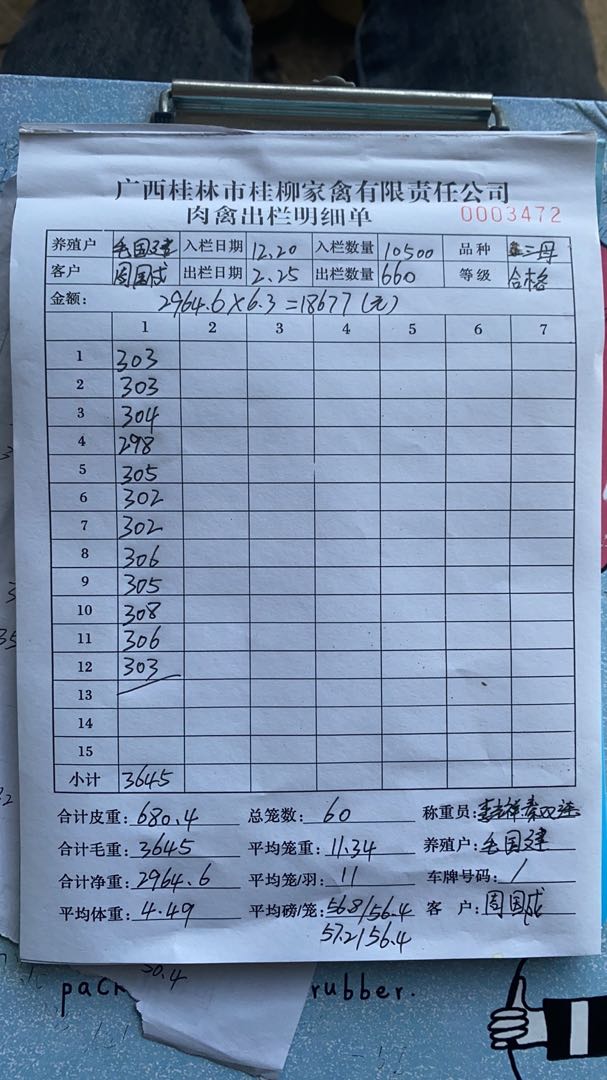 广西桂林市桂柳家禽有限责任公司
肉禽出栏明细单 0003472
养殖户 毛国建 入栏日期 12.20 入栏数量 10500 品种 三母
客户 周国成 出栏日期 2.25 出栏数量 660 等级 合格
金额: 2964.6×6.3=18677(元)
1 2 3 4 5 6 7
1 303
2 303
3 304
4 298
5 305
6 302
7 302
8 306
9 305
10 308
11 306
12 303
13
14
15
小计 3645
合计皮重: 680.4 总笼数: 60 称重员:
合计毛重: 3645 平均笼重: 11.34 养殖户: 毛国建
合计净重: 2964.6 平均笼/羽: 11 车牌号码: /
平均体重: 4.49 平均磅/笼: 56.8/56.4 客 户: 周国成
57.2/56.4
50.4
pack rubber.